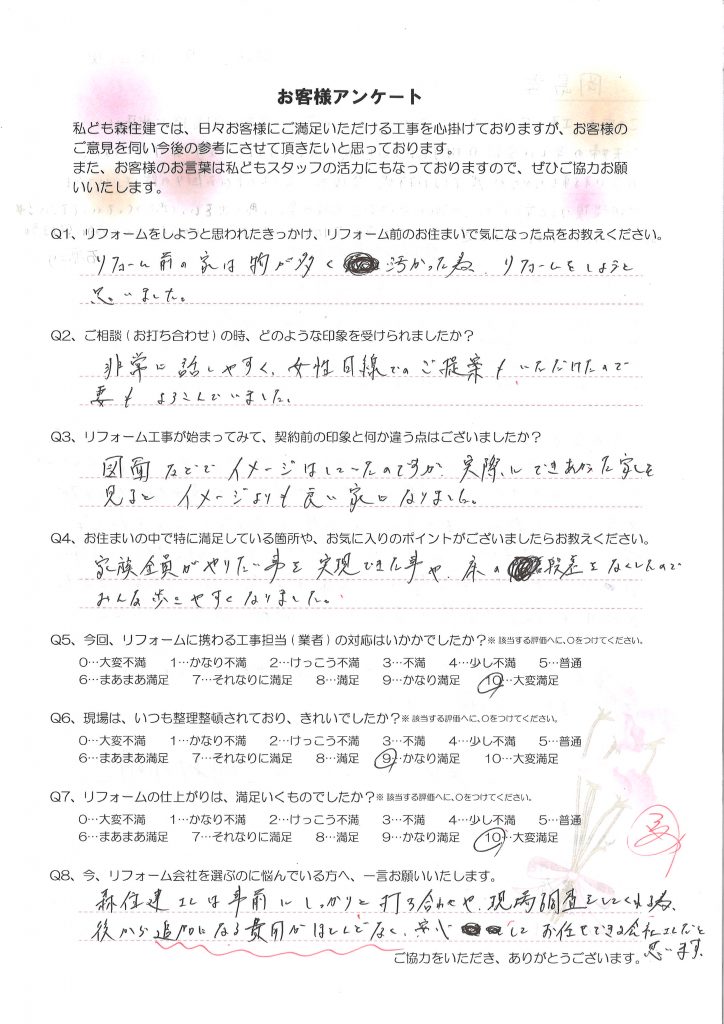 お客様アンケート
私ども森住建では、日々お客様にご満足いただける工事を心掛けておりますが、お客様の
ご意見を伺い今後の参考にさせて頂きたいと思っております。
また、お客様のお言葉は私どもスタッフの活力にもなっておりますので、ぜひご協力お願
いいたします。
Q1、リフォームをしようと思われたきっかけ、リフォーム前のお住まいで気になった点をお教えください。
リフォーム前の家は物が多く 汚かった為、リフォームをしようと
思いました。
Q2、ご相談(お打ち合わせ)の時、どのような印象を受けられましたか?
非常に話しやすく、女性目線でのご提案もいただけたので
妻も よろこんでいました。
Q3、リフォーム工事が始まってみて、契約前の印象と何か違う点はございましたか?
図面などでイメージはしていたのですが、実際にできあがった家を
見ると イメージよりも良い家になりました。
Q4、お住まいの中で特に満足している箇所や、お気に入りのポイントがございましたらお教えください。
家族全員がやりたい事を実現できた事や、床の 段差をなくしたので
みんな歩きやすくなりました。
Q5、今回、リフォームに携わる工事担当(業者)の対応はいかがでしたか?※該当する評価へに、○をつけてください。
0…大変不満 1…かなり不満 2…けっこう不満 3…不満 4…少し不満 5…普通
6…まあまあ満足 7…それなりに満足 8…満足 9…かなり満足 10…大変満足
Q6、現場は、いつも整理整頓されており、きれいでしたか?※該当する評価へに、○をつけてください。
0…大変不満 1…かなり不満 2…けっこう不満 3…不満 4…少し不満 5…普通
6…まあまあ満足 7…それなりに満足 8…満足 9…かなり満足 10…大変満足
Q7、リフォームの仕上がりは、満足いくものでしたか?※該当する評価へに、○をつけてください。
0…大変不満 1…かなり不満 2…けっこう不満 3…不満 4…少し不満 5…普通
6…まあまあ満足 7…それなりに満足 8…満足 9…かなり満足 10…大変満足
Q8、今、リフォーム会社を選ぶのに悩んでいる方へ、一言お願いいたします。
森住建さんは事前にしっかりと打ち合わせや、現場調査をしてくれる為、
後から追加になる費用がほとんどなく、安心 して お任せできる会社さんだと
思います。
ご協力をいただき、ありがとうございます。